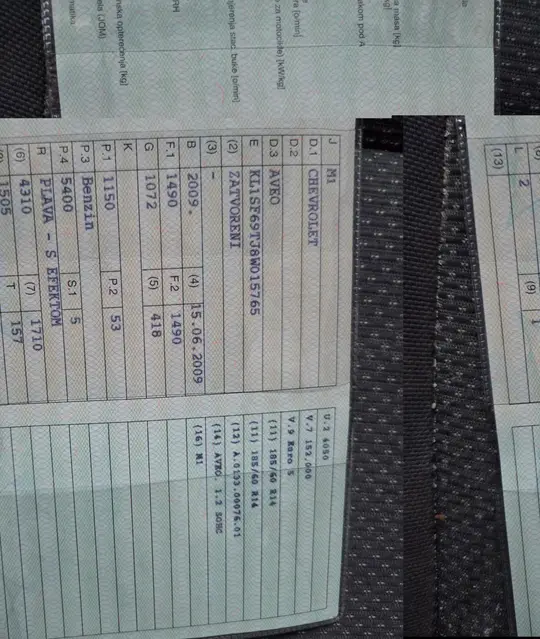 naka opterećenja [kg]
jerenja stac. buke [o/min]
za motocikle) [kW/kg]
ra [o/min]
kom pod A
a masa [kg]
J M1
D.1 CHEVROLET
D.2
D.3 AVEO
E KL1SF69TJ8W015765
(2) ZATVORENI
(3) -
B 2009. (4) 15.06.2009
F.1 1490 F.2 1490
G 1072 (5) 418
K
P.1 1150 P.2 53
P.3 Benzin
P.4 5400 S.1 5
R PLAVA - S EFEKTOM
(6) 4310 (7) 1710
1505 T 157
U.2 4050
V.7 152,000
V.9 Euro 5
(11) 185/60 R14
(11) 185/60 R14
(12) A.0133.00076.01
(14) AVEO 1.2 SOHC
(16) M1
L 2 (9) 1
(13)